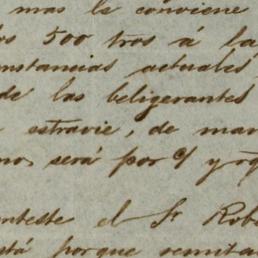 mas le conviene
os 500 tros á la
unstancias actuales
de las beligerantes
estravie, de man
no, será por c/ y
nteste el Sr Rob
stá porque remita